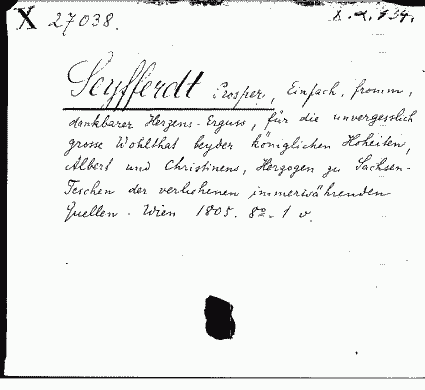 X 27038. X.α.734.
Seyfferdt Prosper, Einfach, fromm,
dankbarer Herzens-Erguss, für die unvergesslich
grosse Wohlthat beyder königlichen Hoheiten,
Albert und Christinens, Herzogen zu Sachsen-
Teschen der verliehenen immerwährenden
Quellen. Wien 1805. 8º. 1 v.